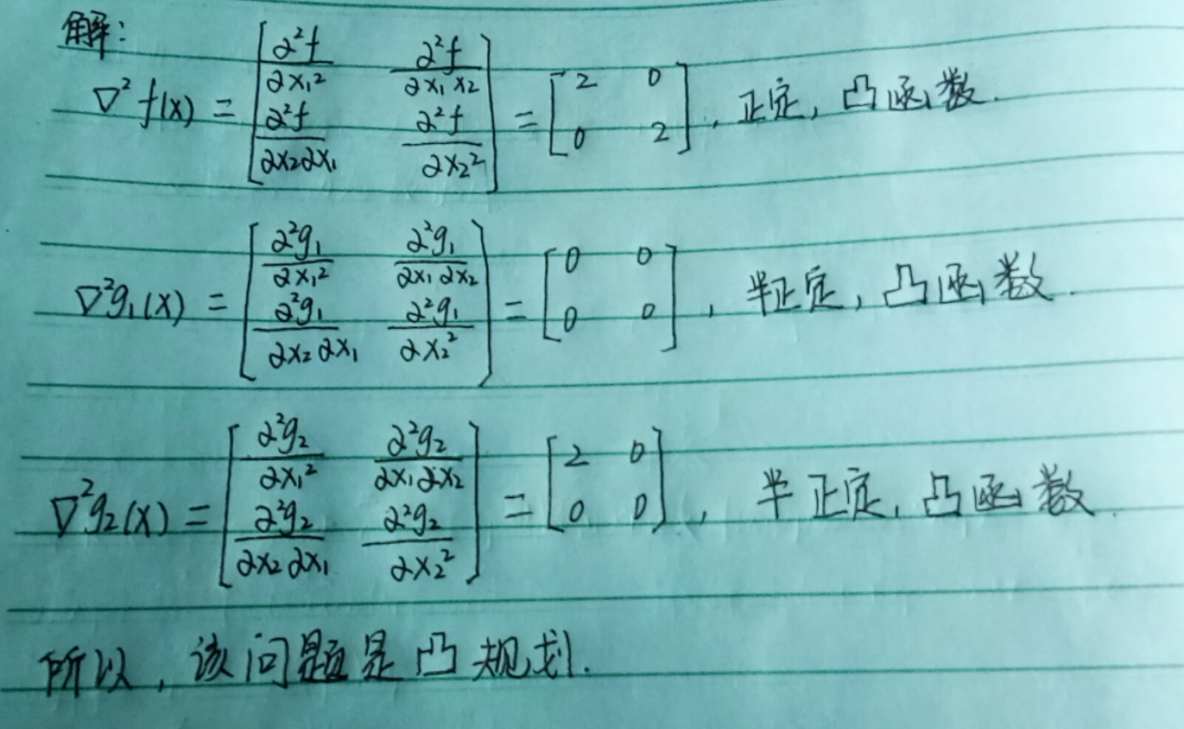 解:
∇²f(x) = [∂²f/∂x₁² ∂²f/∂x₁x₂; ∂²f/∂x₂∂x₁ ∂²f/∂x₂²] = [2 0; 0 2], 正定, 凸函数.
∇²g₁(x) = [∂²g₁/∂x₁² ∂²g₁/∂x₁∂x₂; ∂²g₁/∂x₂∂x₁ ∂²g₁/∂x₂²] = [0 0; 0 0], 半正定, 凸函数.
∇²g₂(x) = [∂²g₂/∂x₁² ∂²g₂/∂x₁∂x₂; ∂²g₂/∂x₂∂x₁ ∂²g₂/∂x₂²] = [2 0; 0 0], 半正定, 凸函数.
所以, 该问题是凸规划.